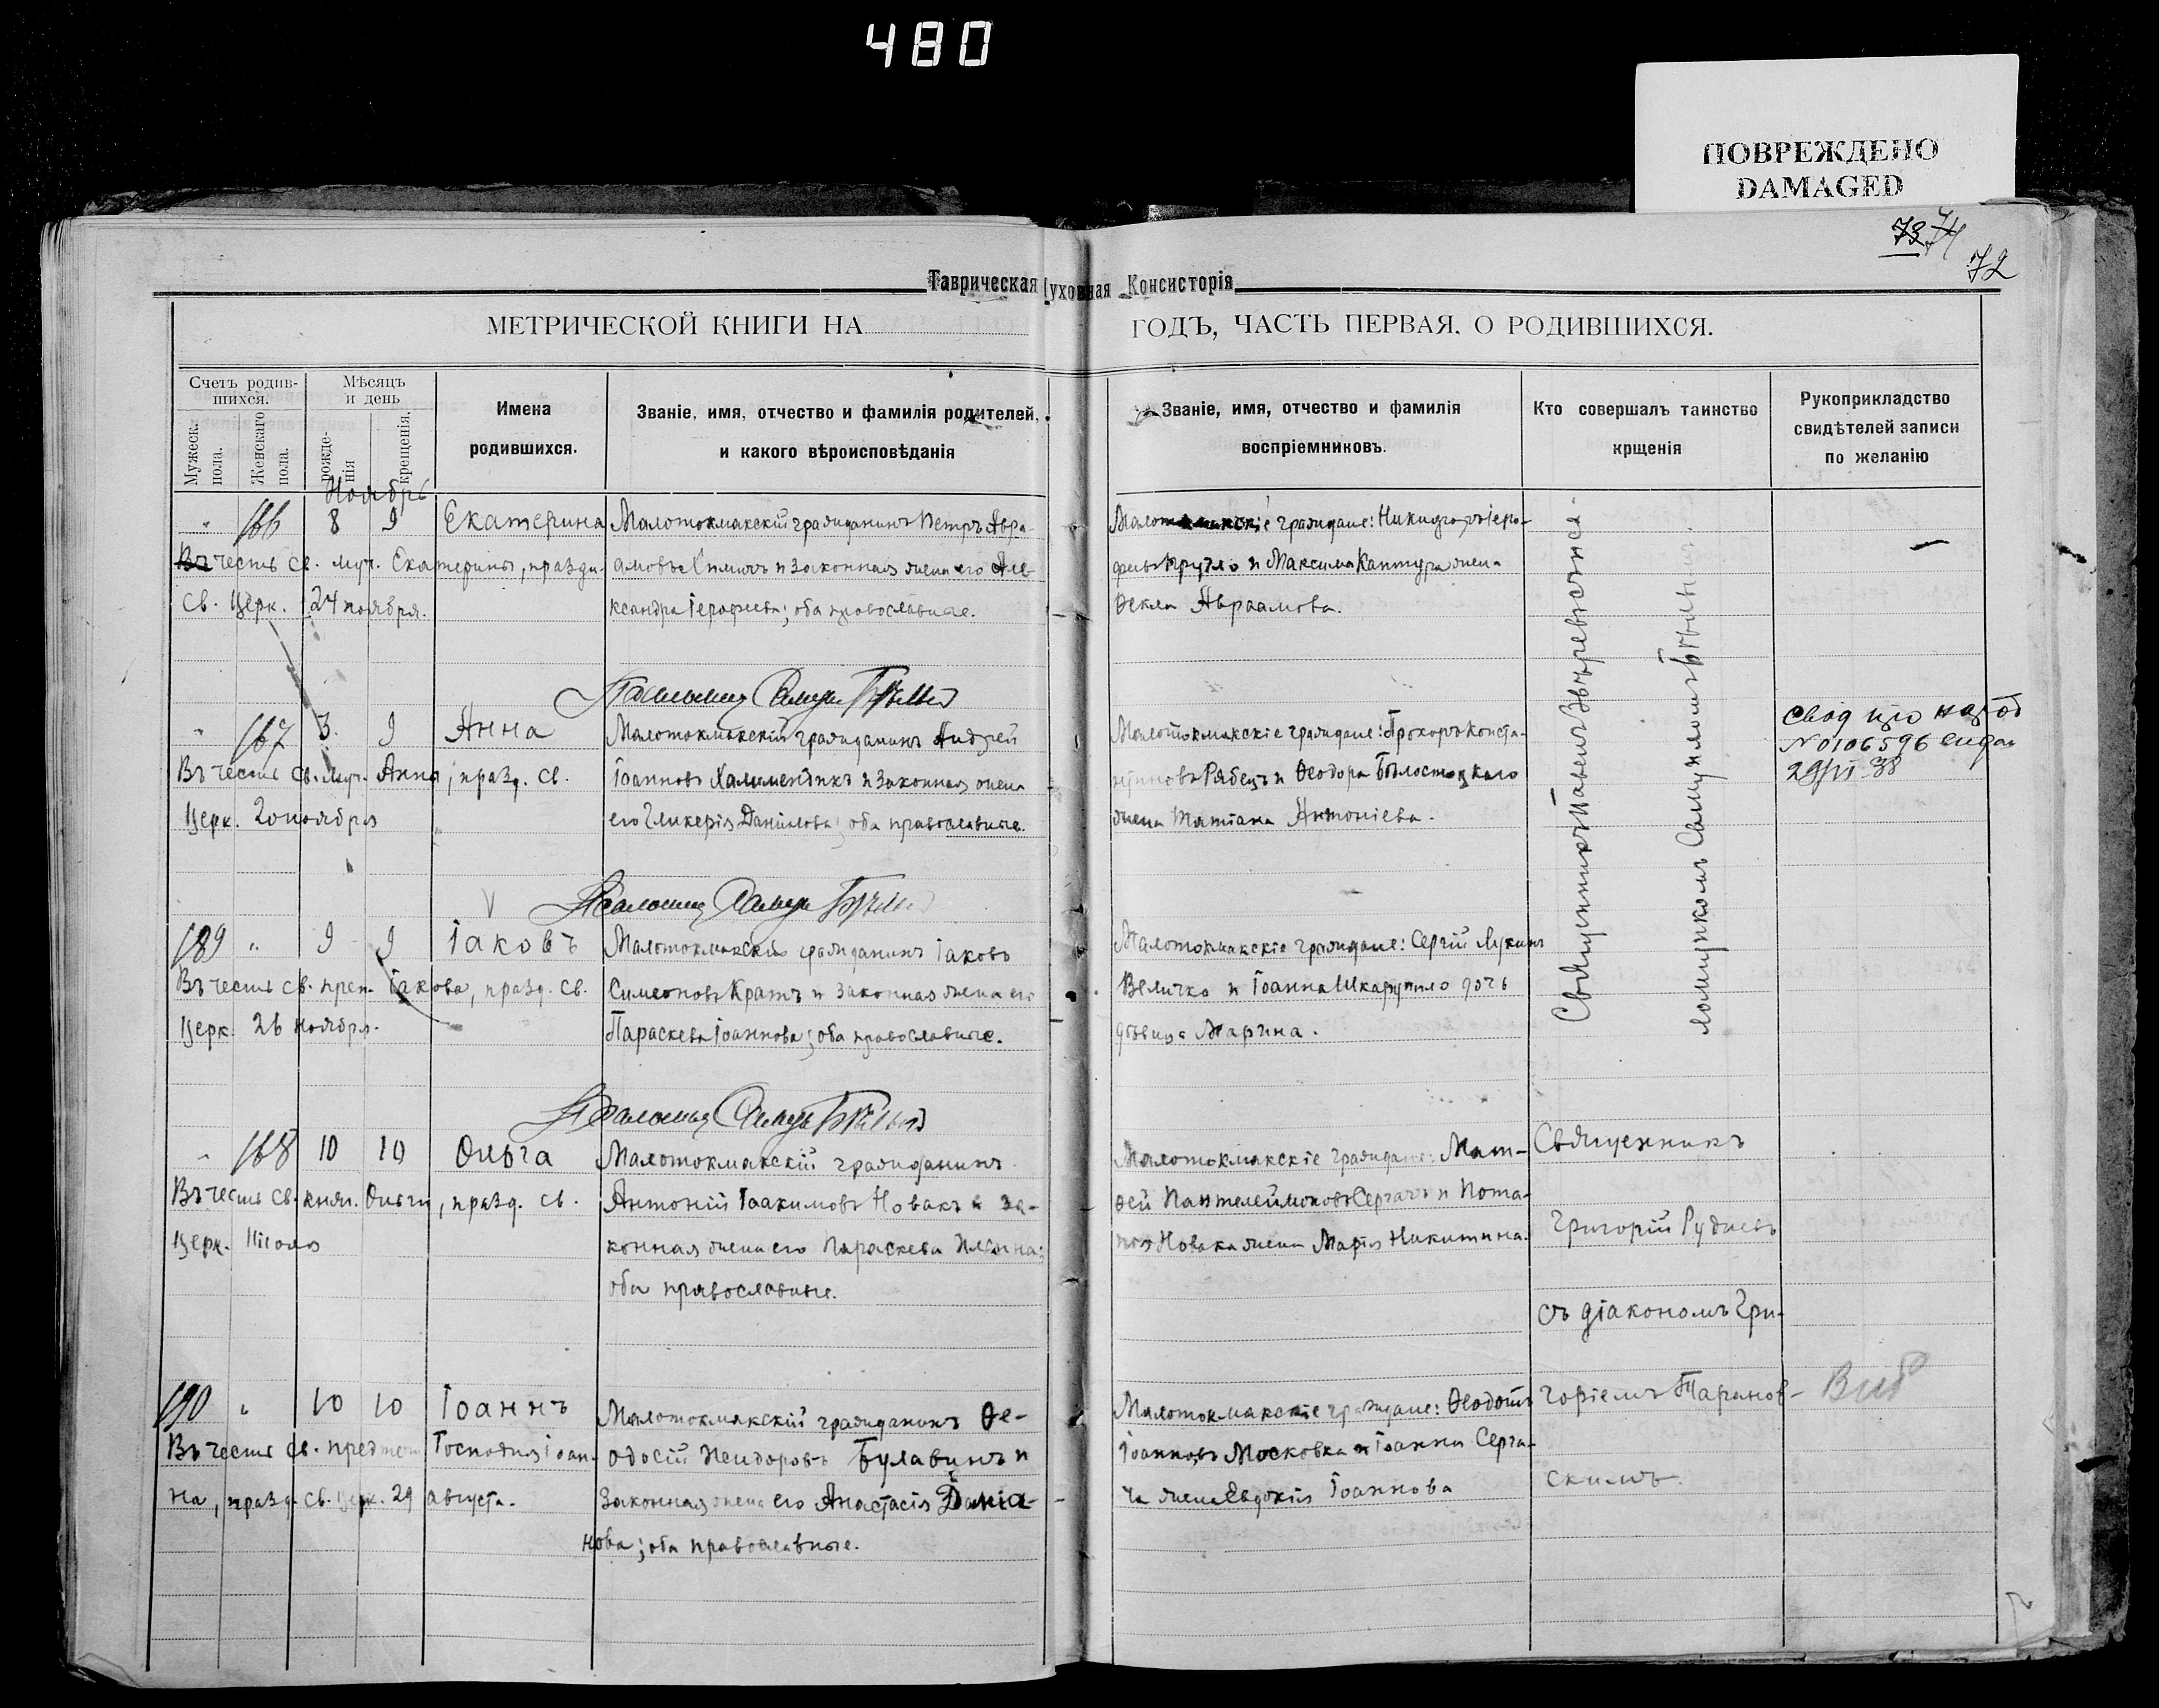 480
ПОВРЕЖДЕНО
DAMAGED
73 74
72
Таврическая уховная Консисторія
МЕТРИЧЕСКОЙ КНИГИ НА
ГОДЪ, ЧАСТЬ ПЕРВАЯ, О РОДИВШИХСЯ.
Счетъ родив-
шихся.
Мужеск.
пола.
Женскаго
пола.
Мѣсяцъ
и день
рожде-
нія
крещенія.
Имена
родившихся.
Званіе, имя, отчество и фамилія родителей,
и какого вѣроисповѣданія
Званіе, имя, отчество и фамилія
воспріемниковъ.
Кто совершалъ таинство
крщенія
Рукоприкладство
свидѣтелей записи
по желанію
Ноябрь
" 166 8 9 Екатерина
Въ честь св. муч. Екатерины, праздн.
св. Церк. 24 ноября.
Малотокмакскій гражданинъ Петръ Авра-
амовъ и законная жена его Але-
ксандра Іерофеева; оба православные.
Малотокмакскіе граждане: Никифоръ Іеро-
феевъ Кругло и Максима Кантура жена
Ѳекла Авраамова.
Псаломщ
" 167 3 9 Анна
Въ честь св. муч. Анны, празд. св.
Церк. 20 ноября
Малотокмакскій гражданинъ Андрей
Іоанновъ Халименчикъ и законная жена
его Гликерія Данілова; оба православные.
Малотокмакскіе граждане: Прохоръ Конста-
нтиновъ Рябецъ и Ѳеодора Бѣлостоцкаго
жена Татіана Антоніева.
№ 0106596
Псаломщ
189 " 9 9 Іаковъ
Въ честь св. преп. Іакова, празд. св.
Церк. 26 ноября.
Малотокмакскій гражданинъ Іаковъ
Симеоновъ Кратъ и законная жена его
Параскева Іоаннова; оба православные.
Малотокмакскіе граждане: Сергій Лукинъ
Величко и Іоанна Шкарупило дочь
дѣвица Марина.
Псаломщ
Священникъ Павелъ
ломщикомъ Самуиломъ
" 168 10 10 Ольга
Въ честь св. княг. Ольги, празд. св.
Церк. 11 іюля
Малотокмакскій гражданинъ
Антоній Іоакимовъ Новакъ и за-
конная жена его Параскева Ильина;
оба православные.
Малотокмакскіе граждане: Мат-
ѳей Пантелеймоновъ Сергачъ и Пота-
пія Новака жена Марія Никитина.
Священникъ
Григорій Рудневъ
съ діакономъ Гри-
горіемъ Таранов-
скимъ
190 " 10 10 Іоаннъ
Въ честь св. предтечи Господня Іоан-
на, празд. св. Церк. 29 августа.
Малотокмакскій гражданинъ Ѳе-
одосій Исидоровъ Булавинъ и
законная жена его Анастасія Даніа-
нова; оба православные.
Малотокмакскіе граждане: Ѳеодотъ
Іоанновъ Московка и Іоанна Серга-
ча жена Евдокія Іоаннова